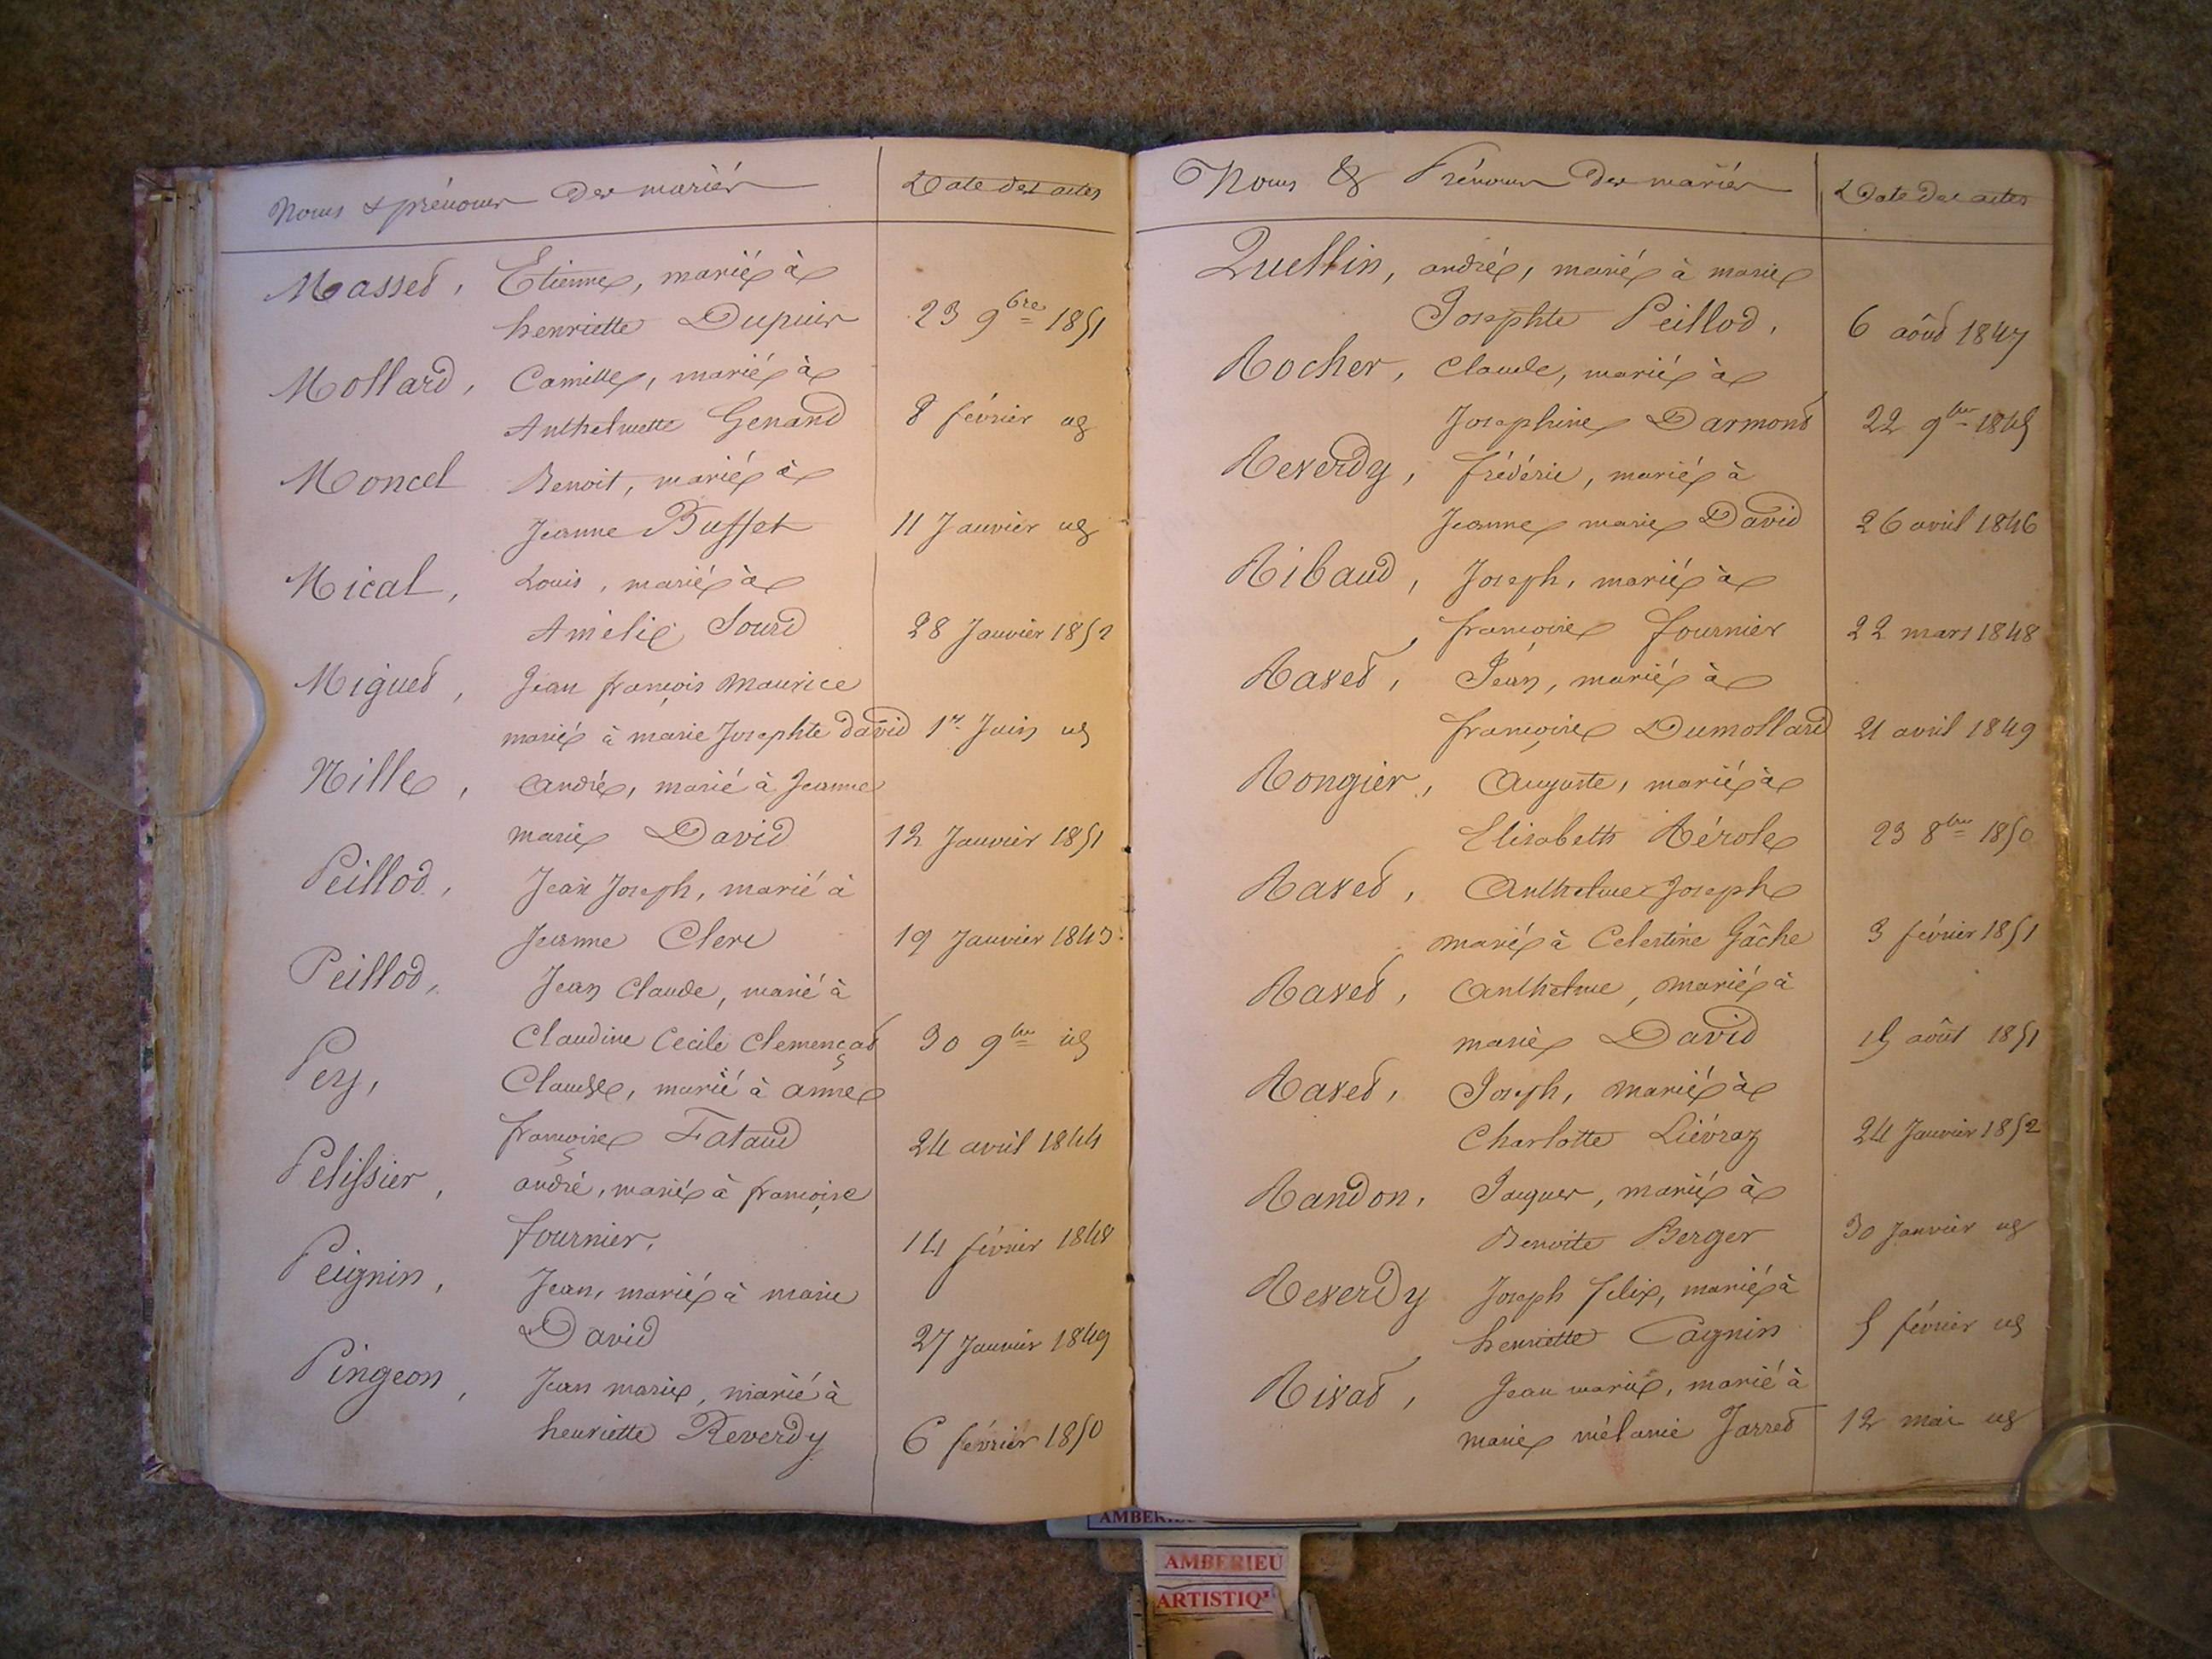 Noms & prénoms des mariés
Date des actes
Masset, Etienne, marié à
henriette Dupuis 23 9bre 1851
Mollard, Camille, marié à
Anthelmette Genand 8 février
Moncel Benoit, marié à
Jeanne Buffet 11 Janvier
Mical, Louis, marié à
Amélie Sourd 28 Janvier 1852
Miguet, Jean françois Maurice
marié à marie Josephte david 1er Juin
Nille, André, marié à Jeanne
marie David 12 Janvier 1851
Peillod, Jean Joseph, marié à
Jeanne Clerc 19 Janvier 1843
Peillod, Jean Claude, marié à
Claudine Cecile Clemençat 30 9bre
Pey, Claude, marié à anne
françoise Fataud 24 avril 1844
Pelissier, andré, marié à françoise
fournier, 14 février 1848
Peignin, Jean, marié à marie
David 27 Janvier 1849
Pingeon, Jean marie, marié à
henriette Reverdy 6 février 1850
Noms & Prénoms des mariés
Date des actes
Quellin, andré, marié à marie
Josephte Peillod, 6 aôut 1847
Rocher, Claude, marié à
Josephine Darmont 22 9bre 1845
Reverdy, frédéric, marié à
Jeanne marie David 26 avril 1846
Ribaud, Joseph, marié à
françoise fournier 22 mars 1848
Ravet, Jean, marié à
françoise Dumollard 21 avril 1849
Rongier, Auguste, marié à
Elisabeth Rérole 23 8bre 1850
Ravet, Anthelme Joseph
marié à Celestine Gâche 3 février 1851
Ravet, Anthelme, marié à
marie David 15 août 1851
Ravet, Joseph, marié à
Charlotte Liévraz 24 Janvier 1852
Randon, Jaques, marié à
Benoite Berger 30 Janvier
Reverdy Joseph felix, marié à
henriette Cagnin 5 février
Rivat, Jean marie, marié à
marie mélanie Jarret 12 mai
AMBERIEU
ARTISTIQ